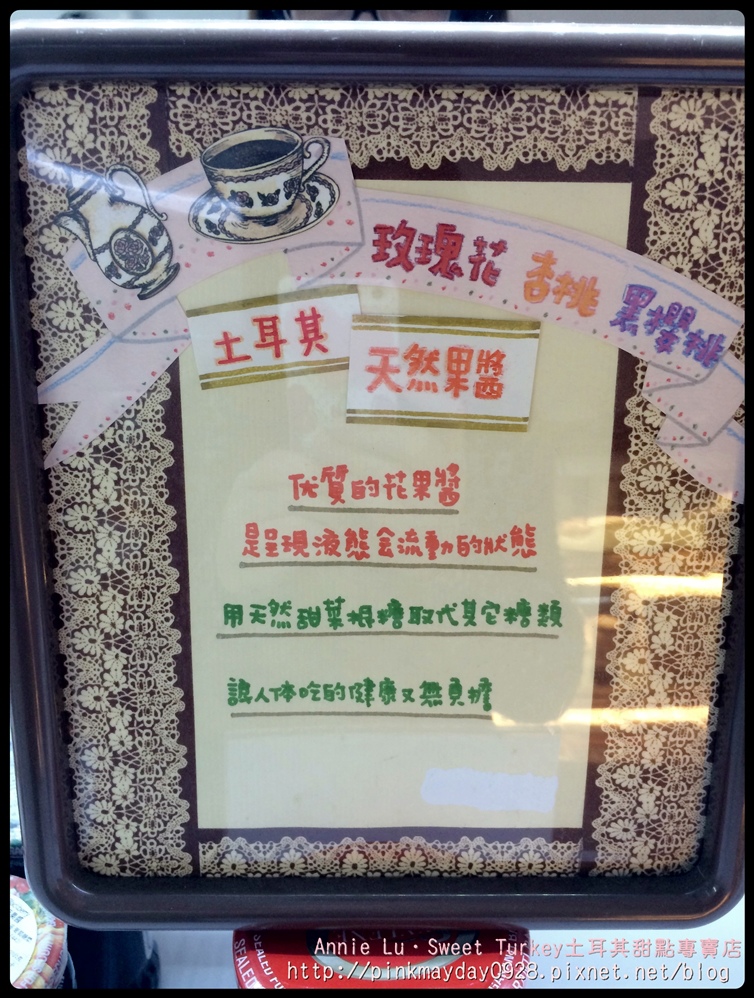 玫瑰花 杏桃 黑櫻桃
土耳其
天然果醬
优質的花果醬
是呈現液態會流動的狀態
用天然甜菜根糖取代其它糖類
讓人体吃的健康又無負擔
Annie Lu·Sweet Turkey土耳其甜點專賣店
http://pinkmayday0928.pixnet.net/blog